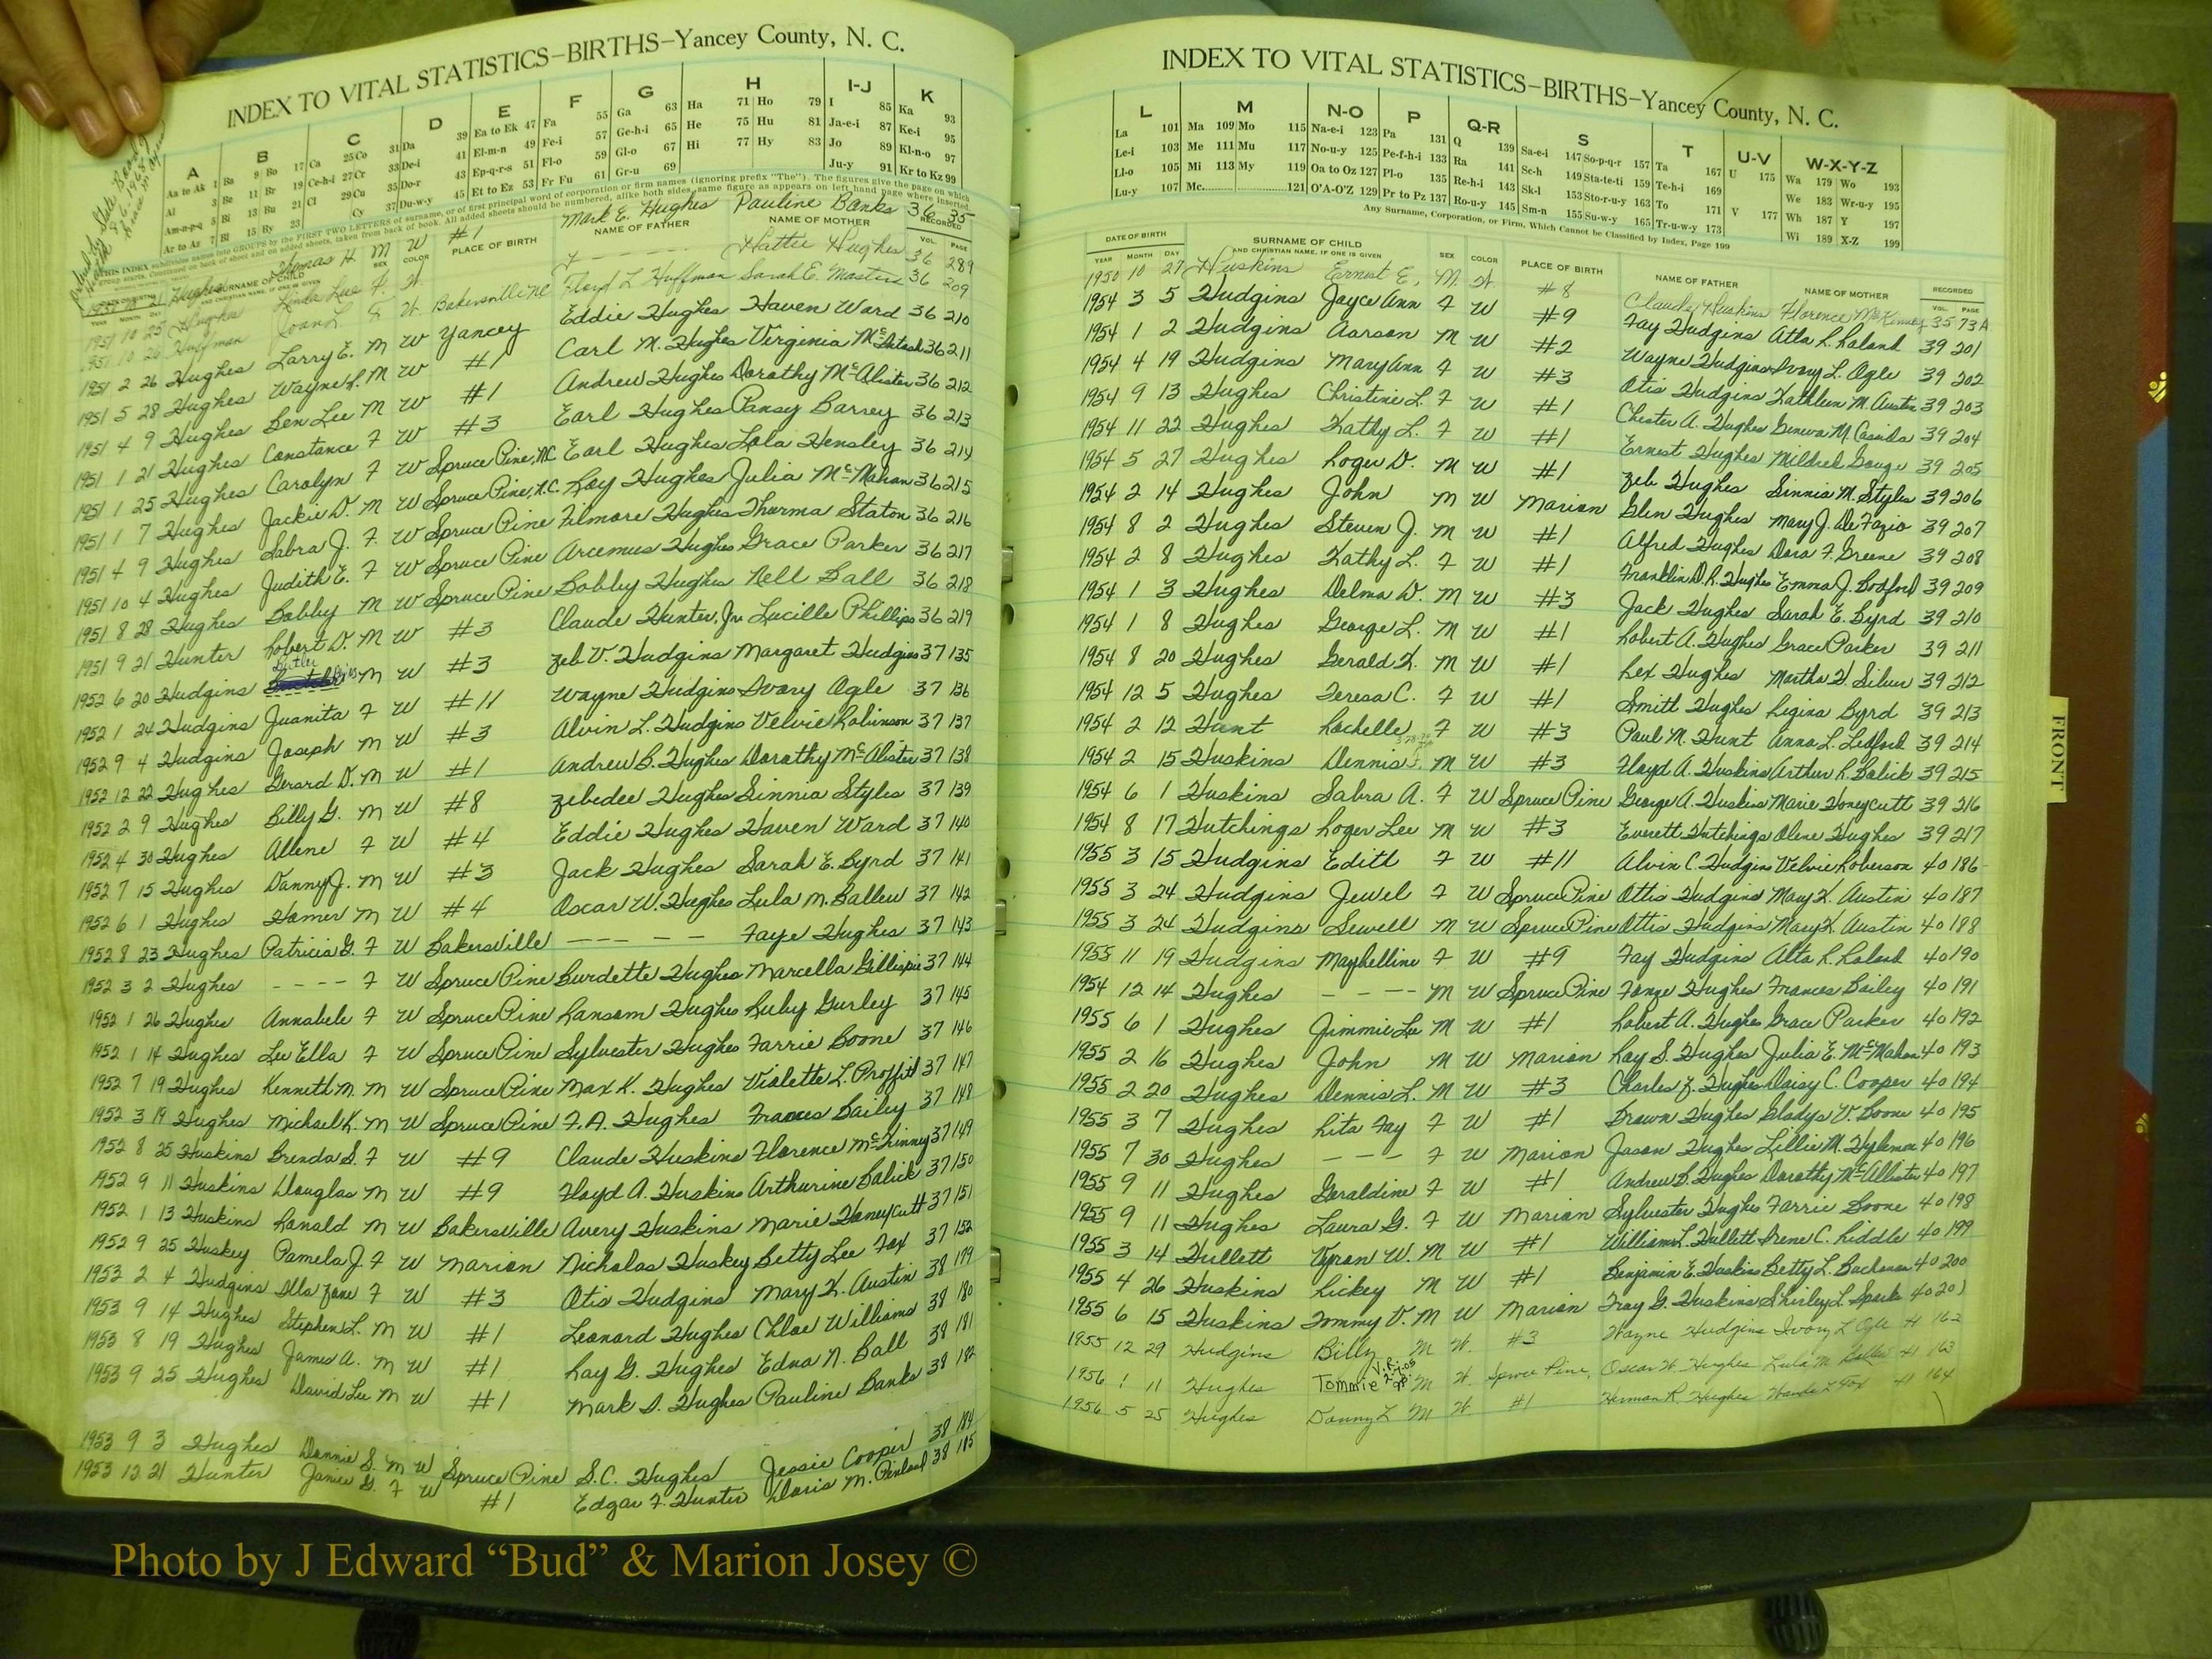 INDEX TO VITAL STATISTICS—BIRTHS—Yancey County, N. C.
A B C D E F G H I-J K
Aa to Ak 1 Ba 9 Bo 17 Ca 25 Co 31 Da 39 Ea to Ek 47 Fa 55 Ga 63 Ha 71 Ho 79 I 85 Ka 93
Al 3 Be 11 Br 19 Ce-h-i 27 Cr 33 De-i 41 El-m-n 49 Fe-i 57 Ge-h-i 65 He 75 Hu 81 Ja-e-i 87 Ke-i 95
Am-n-p-q 5 Bi 13 Bu 21 Cl 29 Cu 35 Do-r 43 Ep-q-r-s 51 Fl-o 59 Gl-o 67 Hi 77 Hy 83 Jo 89 Kl-n-o 97
Ar to Az 7 Bl 15 By 23 Cy 37 Du-w-y 45 Et to Ez 53 Fr Fu 61 Gr-u 69 Ju-y 91 Kr to Kz 99
THIS INDEX subdivides names into GROUPS by the FIRST TWO LETTERS of surname, or of first principal word of corporation or firm names (ignoring prefix "The"). The figures give the page on which
group starts. Continued on back of sheet and on added sheets, taken from back of book. All added sheets should be numbered, alike both sides, same figure as appears on left hand page where inserted.
DATE OF BIRTH SURNAME OF CHILD AND CHRISTIAN NAME, IF ONE IS GIVEN SEX COLOR PLACE OF BIRTH NAME OF FATHER NAME OF MOTHER RECORDED
YEAR MONTH DAY VOL. PAGE
Hughes Thomas H. M W #1 Mark E. Hughes Pauline Banks 36 35
1951 10 25 Hughes Linda Lee F W Hattie Hughes 36 289
1951 10 26 Huffman Joan L F W. Bakersville NC Floyd L Huffman Sarah E. Masters 36 209
1951 2 26 Hughes Larry E. M W Yancey Eddie Hughes Haven Ward 36 210
1951 5 28 Hughes Wayne L. M W #1 Carl M. Hughes Virginia 36 211
1951 4 9 Hughes Ben Lee M W #1 Andrew Hughes Dorothy McAlister 36 212
1951 1 21 Hughes Constance F W #3 Earl Hughes Pansy Barrey 36 213
1951 1 25 Hughes Carolyn F W Spruce Pine, N.C. Earl Hughes Lola Hensley 36 214
1951 1 7 Hughes Jackie D. M W Spruce Pine, N.C. Roy Hughes Julia McMahan 36 215
1951 4 9 Hughes Sabra J. F W Spruce Pine Filmore Hughes Thurma Staton 36 216
1951 10 4 Hughes Judith E. F W Spruce Pine Arcemus Hughes Grace Parker 36 217
1951 8 28 Hughes Bobby M W Spruce Pine Bobby Hughes Nell Ball 36 218
1951 9 21 Hunter Robert D. M W #3 Claude Hunter, Jr. Lucille Phillips 36 219
1952 6 20 Hudgins M W #3 Zeb V. Hudgins Margaret Hudgins 37 135
1952 1 24 Hudgins Juanita F W #11 Wayne Hudgins Ivory Ogle 37 136
1952 9 4 Hudgins Joseph M W #3 Alvin L. Hudgins Velvie Robinson 37 137
1952 12 22 Hughes Gerard D. M W #1 Andrew B. Hughes Dorothy McAlister 37 138
1952 2 9 Hughes Billy G. M W #8 Zebedee Hughes Sinnia Styles 37 139
1952 4 30 Hughes Allene F W #4 Eddie Hughes Haven Ward 37 140
1952 7 15 Hughes Danny J. M W #3 Jack Hughes Sarah E. Byrd 37 141
1952 6 1 Hughes Homer M W #4 Oscar W. Hughes Lula M. Ballew 37 142
1952 8 23 Hughes Patricia G. F W Bakersville ----- Faye Hughes 37 143
1952 3 2 Hughes ---- F W Spruce Pine Burdette Hughes Marcella Gillispie 37 144
1952 1 26 Hughes Annabele F W Spruce Pine Ransom Hughes Ruby Gurley 37 145
1952 1 14 Hughes Lee Ella F W Spruce Pine Sylvester Hughes Farrie Boone 37 146
1952 7 19 Hughes Kenneth M. M W Spruce Pine Max K. Hughes Violette L. Proffitt 37 147
1952 3 19 Hughes Michael K. M W Spruce Pine F. A. Hughes Frances Bailey 37 148
1952 8 25 Huskins Brenda S. F W #9 Claude Huskins Florence McKinney 37 149
1952 9 11 Huskins Douglas M W #9 Floyd A. Huskins Arthurine Balick 37 150
1952 1 13 Huskins Ronald M W Bakersville Avery Huskins Marie Honeycutt 37 151
1952 9 25 Huskey Pamela J. F W Marion Nicholas Huskey Betty Lee Fox 37 152
1953 2 4 Hudgins Illa Jane F W #3 Otis Hudgins Mary K. Austin 38 179
1953 9 14 Hughes Stephen L. M W #1 Leonard Hughes Chloe Williams 38 180
1953 8 19 Hughes James A. M W #1 Ray G. Hughes Edna N. Ball 38 181
1953 9 25 Hughes David Lee M W #1 Mark D. Hughes Pauline Banks 38 182
1953 9 3 Hughes Donnie S. M W Spruce Pine S.C. Hughes Jessie Cooper 38 184
1953 12 21 Hunter Janice G. F W #1 Edgar F. Hunter Doris M. Penland 38 185
INDEX TO VITAL STATISTICS—BIRTHS—Yancey County, N. C.
L M N-O P Q-R S T U-V W-X-Y-Z
La 101 Ma 109 Mo 115 Na-e-i 123 Pa 131 Q 139 Sa-e-i 147 So-p-q-r 157 Ta 167 U 175 Wa 179 Wo 193
Le-i 103 Me 111 Mu 117 No-u-y 125 Pe-f-h-i 133 Ra 141 Sc-h 149 Sta-te-ti 159 Te-h-i 169 We 183 Wr-u-y 195
Ll-o 105 Mi 113 My 119 Oa to Oz 127 Pl-o 135 Re-h-i 143 Sk-l 153 Sto-r-u-y 163 To 171 V 177 Wh 187 Y 197
Lu-y 107 Mc 121 O'A-O'Z 129 Pr to Pz 137 Ro-u-y 145 Sm-n 155 Su-w-y 165 Tr-u-w-y 173 Wi 189 X-Z 199
Any Surname, Corporation, or Firm, Which Cannot be Classified by Index, Page 199
DATE OF BIRTH SURNAME OF CHILD AND CHRISTIAN NAME, IF ONE IS GIVEN SEX COLOR PLACE OF BIRTH NAME OF FATHER NAME OF MOTHER RECORDED
YEAR MONTH DAY VOL. PAGE
1950 10 27 Huskins Ernest E. M. W. #8 Claude Huskins Florence McKinney 35 73A
1954 3 5 Hudgins Joyce Ann F W #9 Fay Hudgins Atla R. Roland 39 201
1954 1 2 Hudgins Aarson M W #2 Wayne Hudgins Ivory L. Ogle 39 202
1954 4 19 Hudgins Mary Ann F W #3 Otis Hudgins Kathleen M. Austin 39 203
1954 9 13 Hughes Christine L. F W #1 Chester A. Hughes Geneva M. Casida 39 204
1954 11 22 Hughes Kathy L. F W #1 Ernest Hughes Mildred Gouge 39 205
1954 5 27 Hughes Roger D. M W #1 Zeb Hughes Sinnia M. Styles 39 206
1954 2 14 Hughes John M W Marion Glen Hughes Mary J. DeFazio 39 207
1954 8 2 Hughes Steven J. M W #1 Alfred Hughes Dora F. Greene 39 208
1954 2 8 Hughes Kathy L. F W #1 Franklin D. R. Hughes Emma J. Bodford 39 209
1954 1 3 Hughes Delma D. M W #3 Jack Hughes Sarah E. Byrd 39 210
1954 1 8 Hughes George L. M W #1 Robert A. Hughes Grace Parker 39 211
1954 8 20 Hughes Gerald K. M W #1 Rex Hughes Martha H. Silver 39 212
1954 12 5 Hughes Teresa C. F W #1 Smith Hughes Regina Byrd 39 213
1954 2 12 Hunt Rochelle F W #3 Paul M. Hunt Anna L. Ledford 39 214
1954 2 15 Huskins Dennis M W #3 Floyd A. Huskins Arthur R. Balick 39 215
1954 6 1 Huskins Sabra A. F W Spruce Pine George A. Huskins Marie Honeycutt 39 216
1954 8 17 Hutchings Roger Lee M W #3 Everett Hutchings Olene Hughes 39 217
1955 3 15 Hudgins Edith F W #11 Alvin C. Hudgins Velvie Roberson 40 186
1955 3 24 Hudgins Jewel F W Spruce Pine Ottis Hudgins Mary K. Austin 40 187
1955 3 24 Hudgins Sewell M W Spruce Pine Ottis Hudgins Mary K. Austin 40 188
1955 11 19 Hudgins Maybelline F W #9 Fay Hudgins Alta R. Roland 40 190
1954 12 14 Hughes ---- M W Spruce Pine Fonze Hughes Frances Bailey 40 191
1955 6 1 Hughes Jimmie Lee M W #1 Robert A. Hughes Grace Parker 40 192
1955 2 16 Hughes John M W Marion Ray S. Hughes Julia E. McMahan 40 193
1955 2 20 Hughes Dennis L. M W #3 Charles Z. Hughes Daisy C. Cooper 40 194
1955 3 7 Hughes Rita Fay F W #1 Brown Hughes Gladys V. Boone 40 195
1955 7 30 Hughes --- F W Marion Jason Hughes Lillie M. 40 196
1955 9 11 Hughes Geraldine F W #1 Andrew B. Hughes Dorothy McAllister 40 197
1955 9 11 Hughes Laura G. F W Marion Sylvester Hughes Farrie Boone 40 198
1955 3 14 Hullett Vyron W. M W #1 William L. Hullett Irene C. Riddle 40 199
1955 4 26 Huskins Rickey M W #1 Benjamin E. Huskins Betty L. Buchanan 40 200
1955 6 15 Huskins Tommy V. M W Marion Troy G. Huskins Shirley L. Sparks 40 201
1955 12 29 Hudgins Billy M W. #3 Wayne Hudgins Ivory L Ogle 41 162
1956 1 11 Hughes Tommie M W. Spruce Pine, Oscar W. Hughes Lula M Ballew 41 163
1956 5 25 Hughes Danny L M W. #1 Herman R. Hughes Wanda L Fox 41 164
FRONT
Photo by J Edward “Bud” & Marion Josey ©